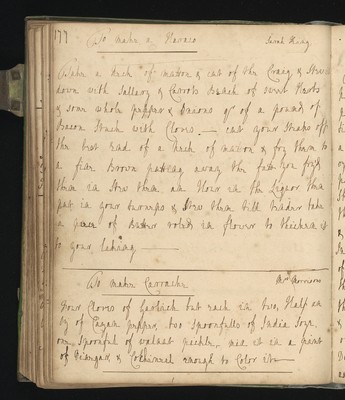 177 To make a Haraco Sarah King
Take a Neck of mutton & cut of the Craig & Stew
down with Sallery & Carrots Bunch of Sweet Harbs
& some whole pepper & Oneons qr of a pound of
Bacon Stuck with Cloves — cut your Steaks off
the best End of a Neck of mutton & fry them to
a fine Brown putting away the fatt you fryd
them in Stew them an Hour in the Liquor then
put in your turnups & Stew them till tender take
a peace of Butter roled in flower to thicken it
to your likeing
To make Carrache Mrs Morrison
Four Cloves of Garlack cut each in two, Half an
oz of Cayan pepper, two spoonfulls of India Soye,
one Spoonful of walnut pickle, mix it in a pint
of Vianger, & Cochineel enough to Color it